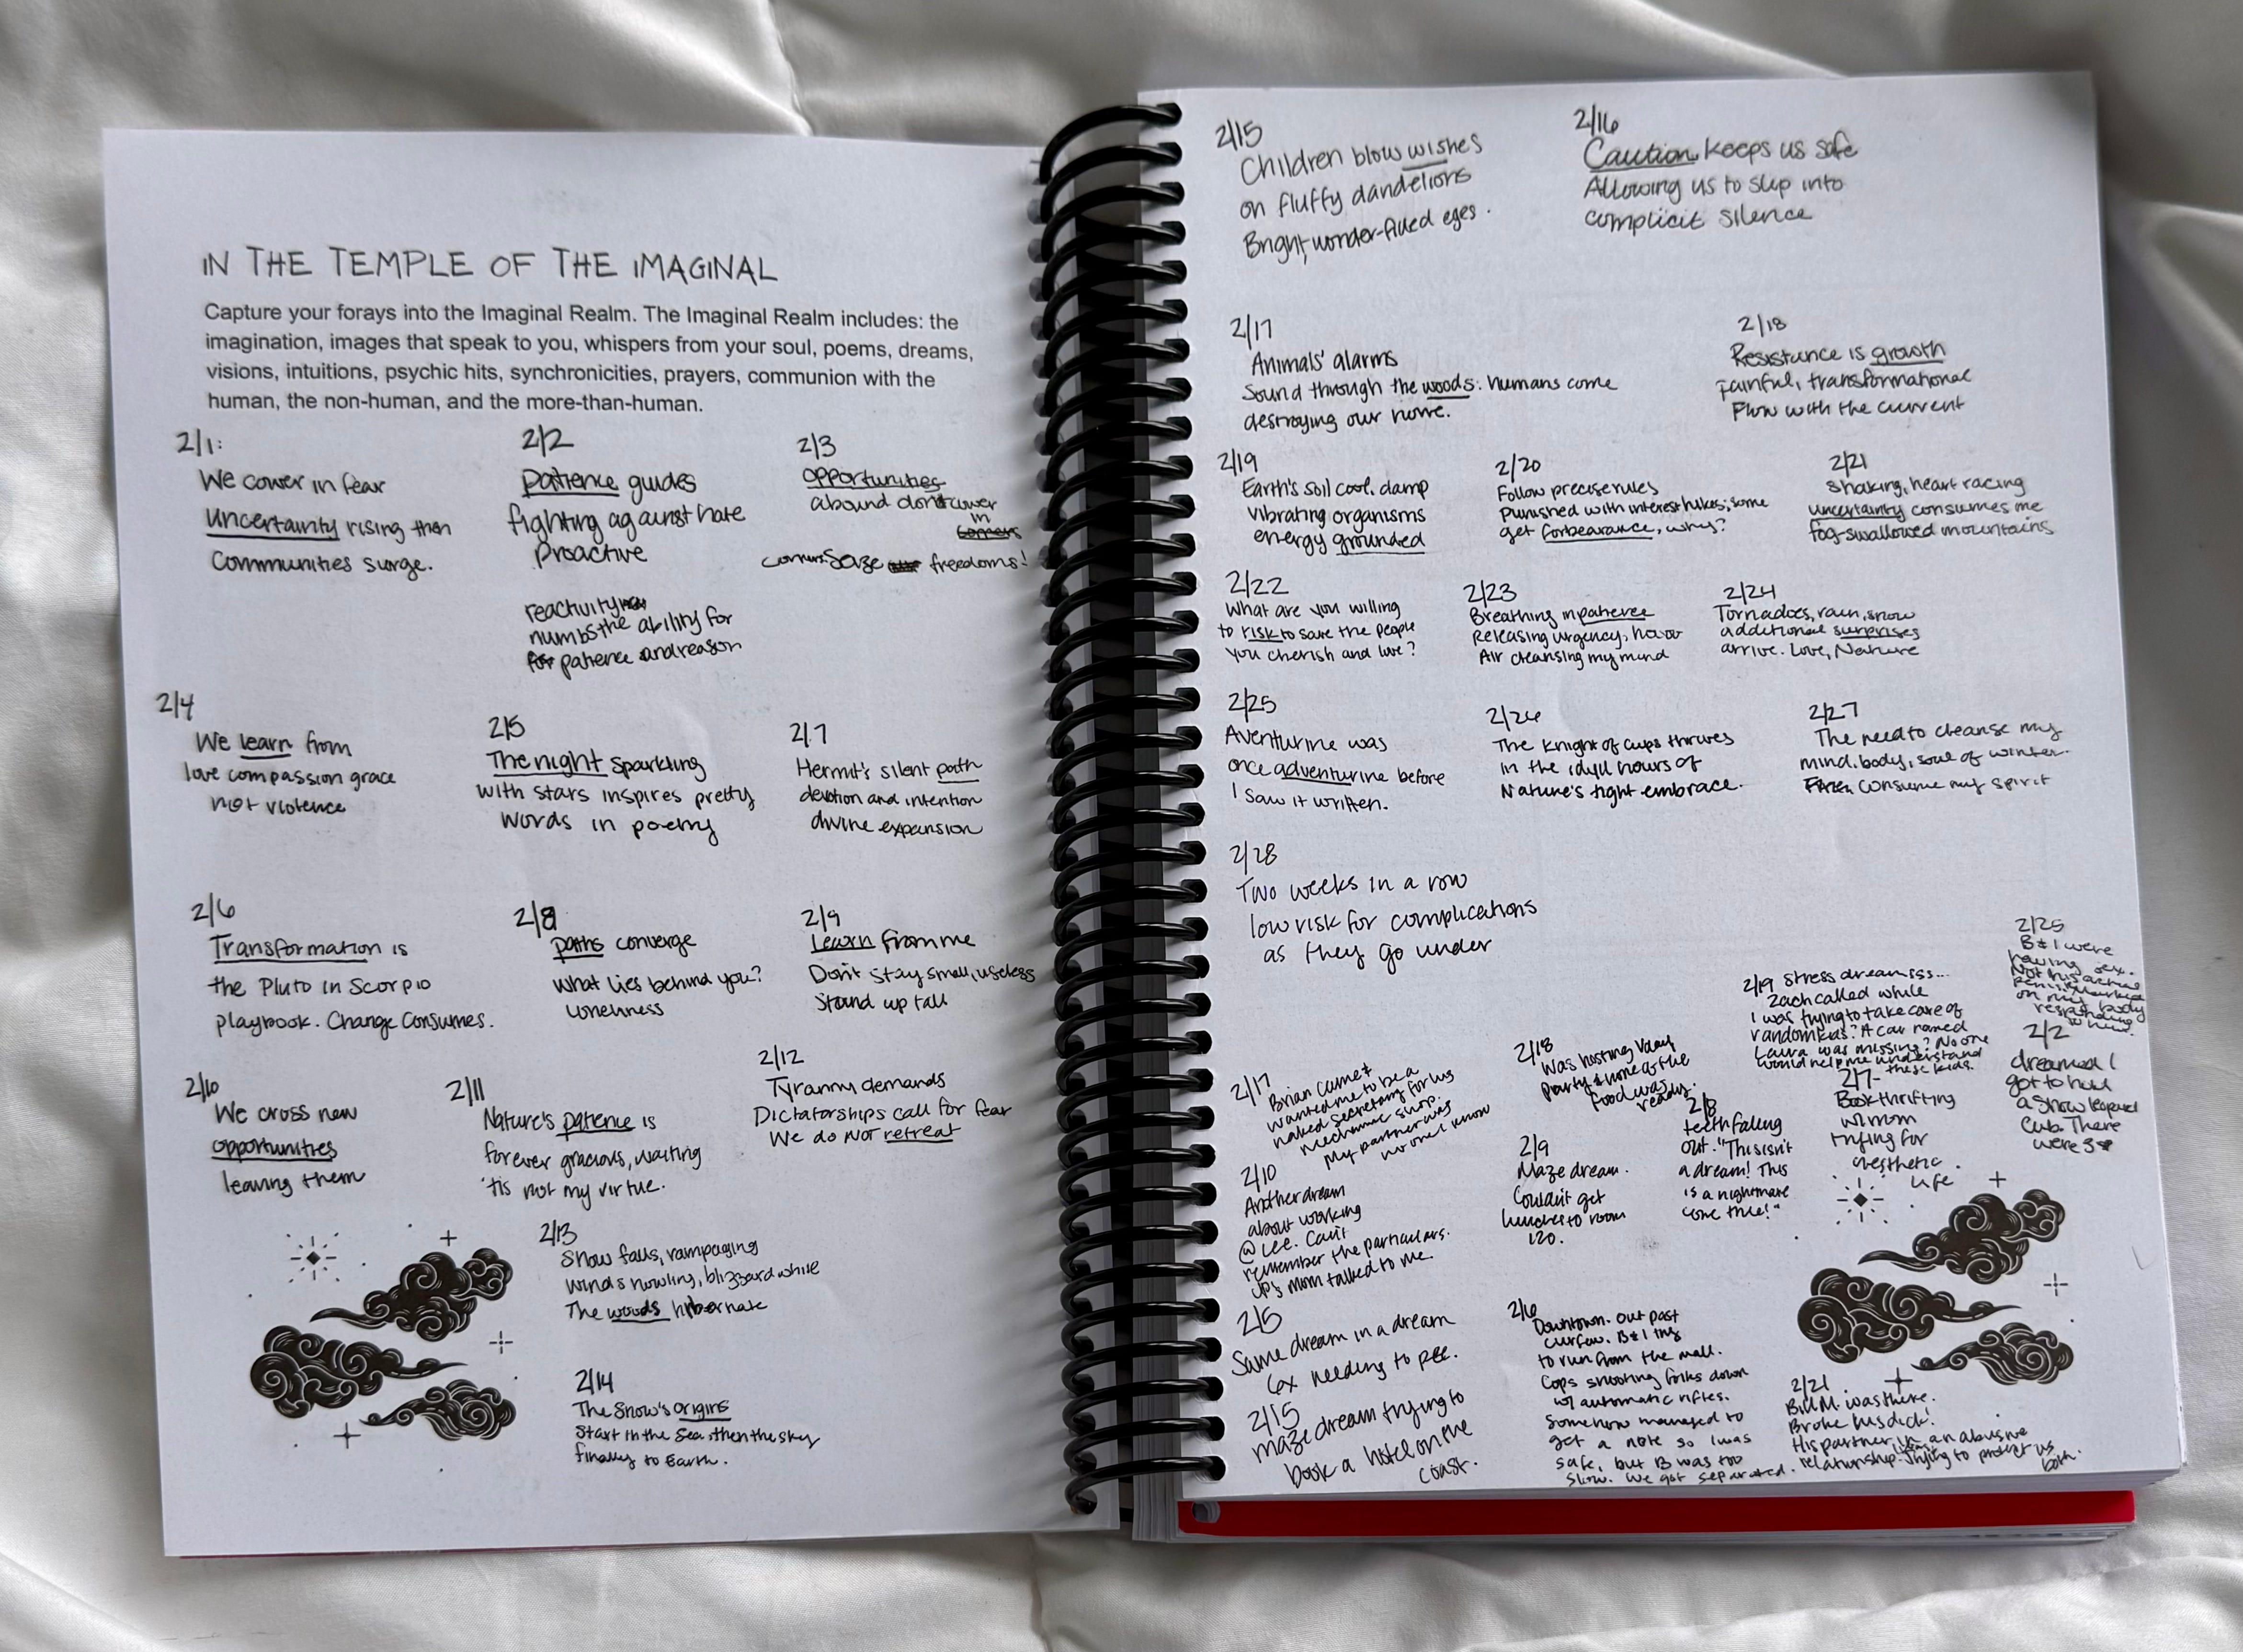 IN THE TEMPLE OF THE IMAGINAL
Capture your forays into the Imaginal Realm. The Imaginal Realm includes: the
imagination, images that speak to you, whispers from your soul, poems, dreams,
visions, intuitions, psychic hits, synchronicities, prayers, communion with the
human, the non-human, and the more-than-human.
2/1:
We cower in fear
Uncertainty rising then
Communities surge.
2/2
Patience guides
fighting against hate
Proactive
reactivity
numbs the ability for
patience and reason
2/3
Opportunities
abound don't cower
in
corners
corners Seize freedoms!
2/4
We learn from
love compassion grace
not violence
2/5
The night sparkling
with stars inspires pretty
words in poetry
2/7
Hermit's silent path
devotion and intention
divine expansion
2/6
Transformation is
the Pluto in Scorpio
playbook. Change consumes.
2/8
paths converge
What lies behind you?
loneliness
2/9
Learn from me
Don't stay small, useless
Stand up tall
2/10
We cross new
opportunities
leaving them
2/11
Nature's patience is
forever gracious, waiting
'tis not my virtue.
2/12
Tyranny demands
Dictatorships call for fear
We do not retreat
2/13
Snow falls, rampaging
winds howling, blizzard while
The woods hibernate
2/14
The Snow's origins
Start in the Sea, then the sky
finally to Earth.
2/15
Children blow wishes
on fluffy dandelions
Bright, wonder-filled eyes.
2/16
Caution keeps us safe
Allowing us to slip into
complicit silence
2/17
Animals' alarms
Sound through the woods: humans come
destroying our home.
2/18
Resistance is growth
painful, transformational
Flow with the current
2/19
Earth's soil cool, damp
vibrating organisms
energy grounded
2/20
Follow precise rules
Punished with interest hikes; some
get forbearance, why?
2/21
Shaking, heart racing
uncertainty consumes me
fog-swallowed mountains
2/22
What are you willing
to risk to save the people
you cherish and love?
2/23
Breathing in patience
Releasing urgency,
Air cleansing my mind
2/24
Tornadoes, rain, snow
additional surprises
arrive. Love, Nature
2/25
Aventurine was
once adventurine before
I saw it written.
2/26
The Knight of Cups thrives
in the idyll hours of
Nature's tight embrace.
2/27
The need to cleanse my
mind, body, soul of winter.
consume my spirit
2/28
Two weeks in a row
low risk for complications
as they go under
2/25
B & I were
having sex.
Not his actual
on my body
responding
to him.
2/19 Stress dream iss...
Zach called while
I was trying to take care of
random kids? A car named
Laura was missing? No one
would help me understand
these kids.
2/2
dreamed I
got to hold
a snow leopard
cub. There
were 3
2/18
Was hosting Vday
party & none of the
food was
ready.
2/17
Brian came &
wanted me to be a
naked secretary for his
mechanic shop.
My partner was
no one I know
2/7-
Book thrifting
w/ mom
trying for
aesthetic
life.
2/8
teeth falling
out. "This isn't
a dream! This
is a nightmare
come true!"
2/9
Maze dream.
Couldn't get
lunches to room
120.
2/10
Another dream
about working
@ Lee. Can't
remember the particulars.
JP's mom talked to me.
2/5
Same dream in a dream
6x needing to pee.
2/15
maze dream trying to
book a hotel on the
coast.
2/6
Downtown. Out past
curfew. B & I try
to run from the mall.
Cops shooting folks down
w/ automatic rifles.
Somehow managed to
get a note so I was
safe, but B was too
slow. We got separated.
2/21
Bill M. was there.
Broke his dick!
His partner in an abusive
relationship. trying to protect us
both.